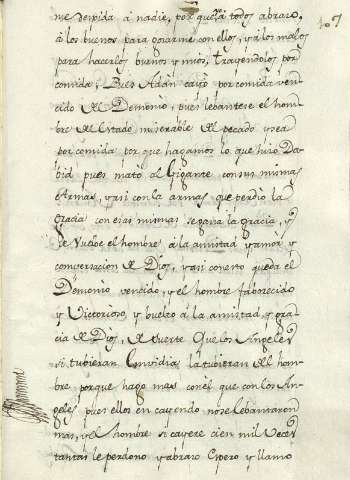 me despida á nadie, por que â todos abrazo,
á los buenos para gozarme con ellos, y álos malos
para hacerlos buenos y mios, trayendolos por
comida; Pues Adàn cayò por comida ven-
cido del Demonio, pues lebantese el hom-
bre del Estado miserable del pecado, y sea
por comida, por que hagamos lo que hizo Da-
bid pues matò al Gigante con sus mismas
Armas, y asi con las armas que perdiò la
gracia con esas mismas se gana la gracia, y
se vuelve el hombre á la amistad y amor, y
conversacion de Dios, y asi con esto queda el
Demonio vencido, y el hombre faborecido
y Victorioso, y buelto á la amistad, y gra-
cia de Dios, de suerte Que los Angeles
si tubieran Embidia la tubieran del hom-
bre, porque hago mas con él que con los An-
geles pues ellos en cayendo no se lebantaron
mas, y el hombre si cayere cien mil veces
tantas le perdono y abrazo Espero y llamo
107